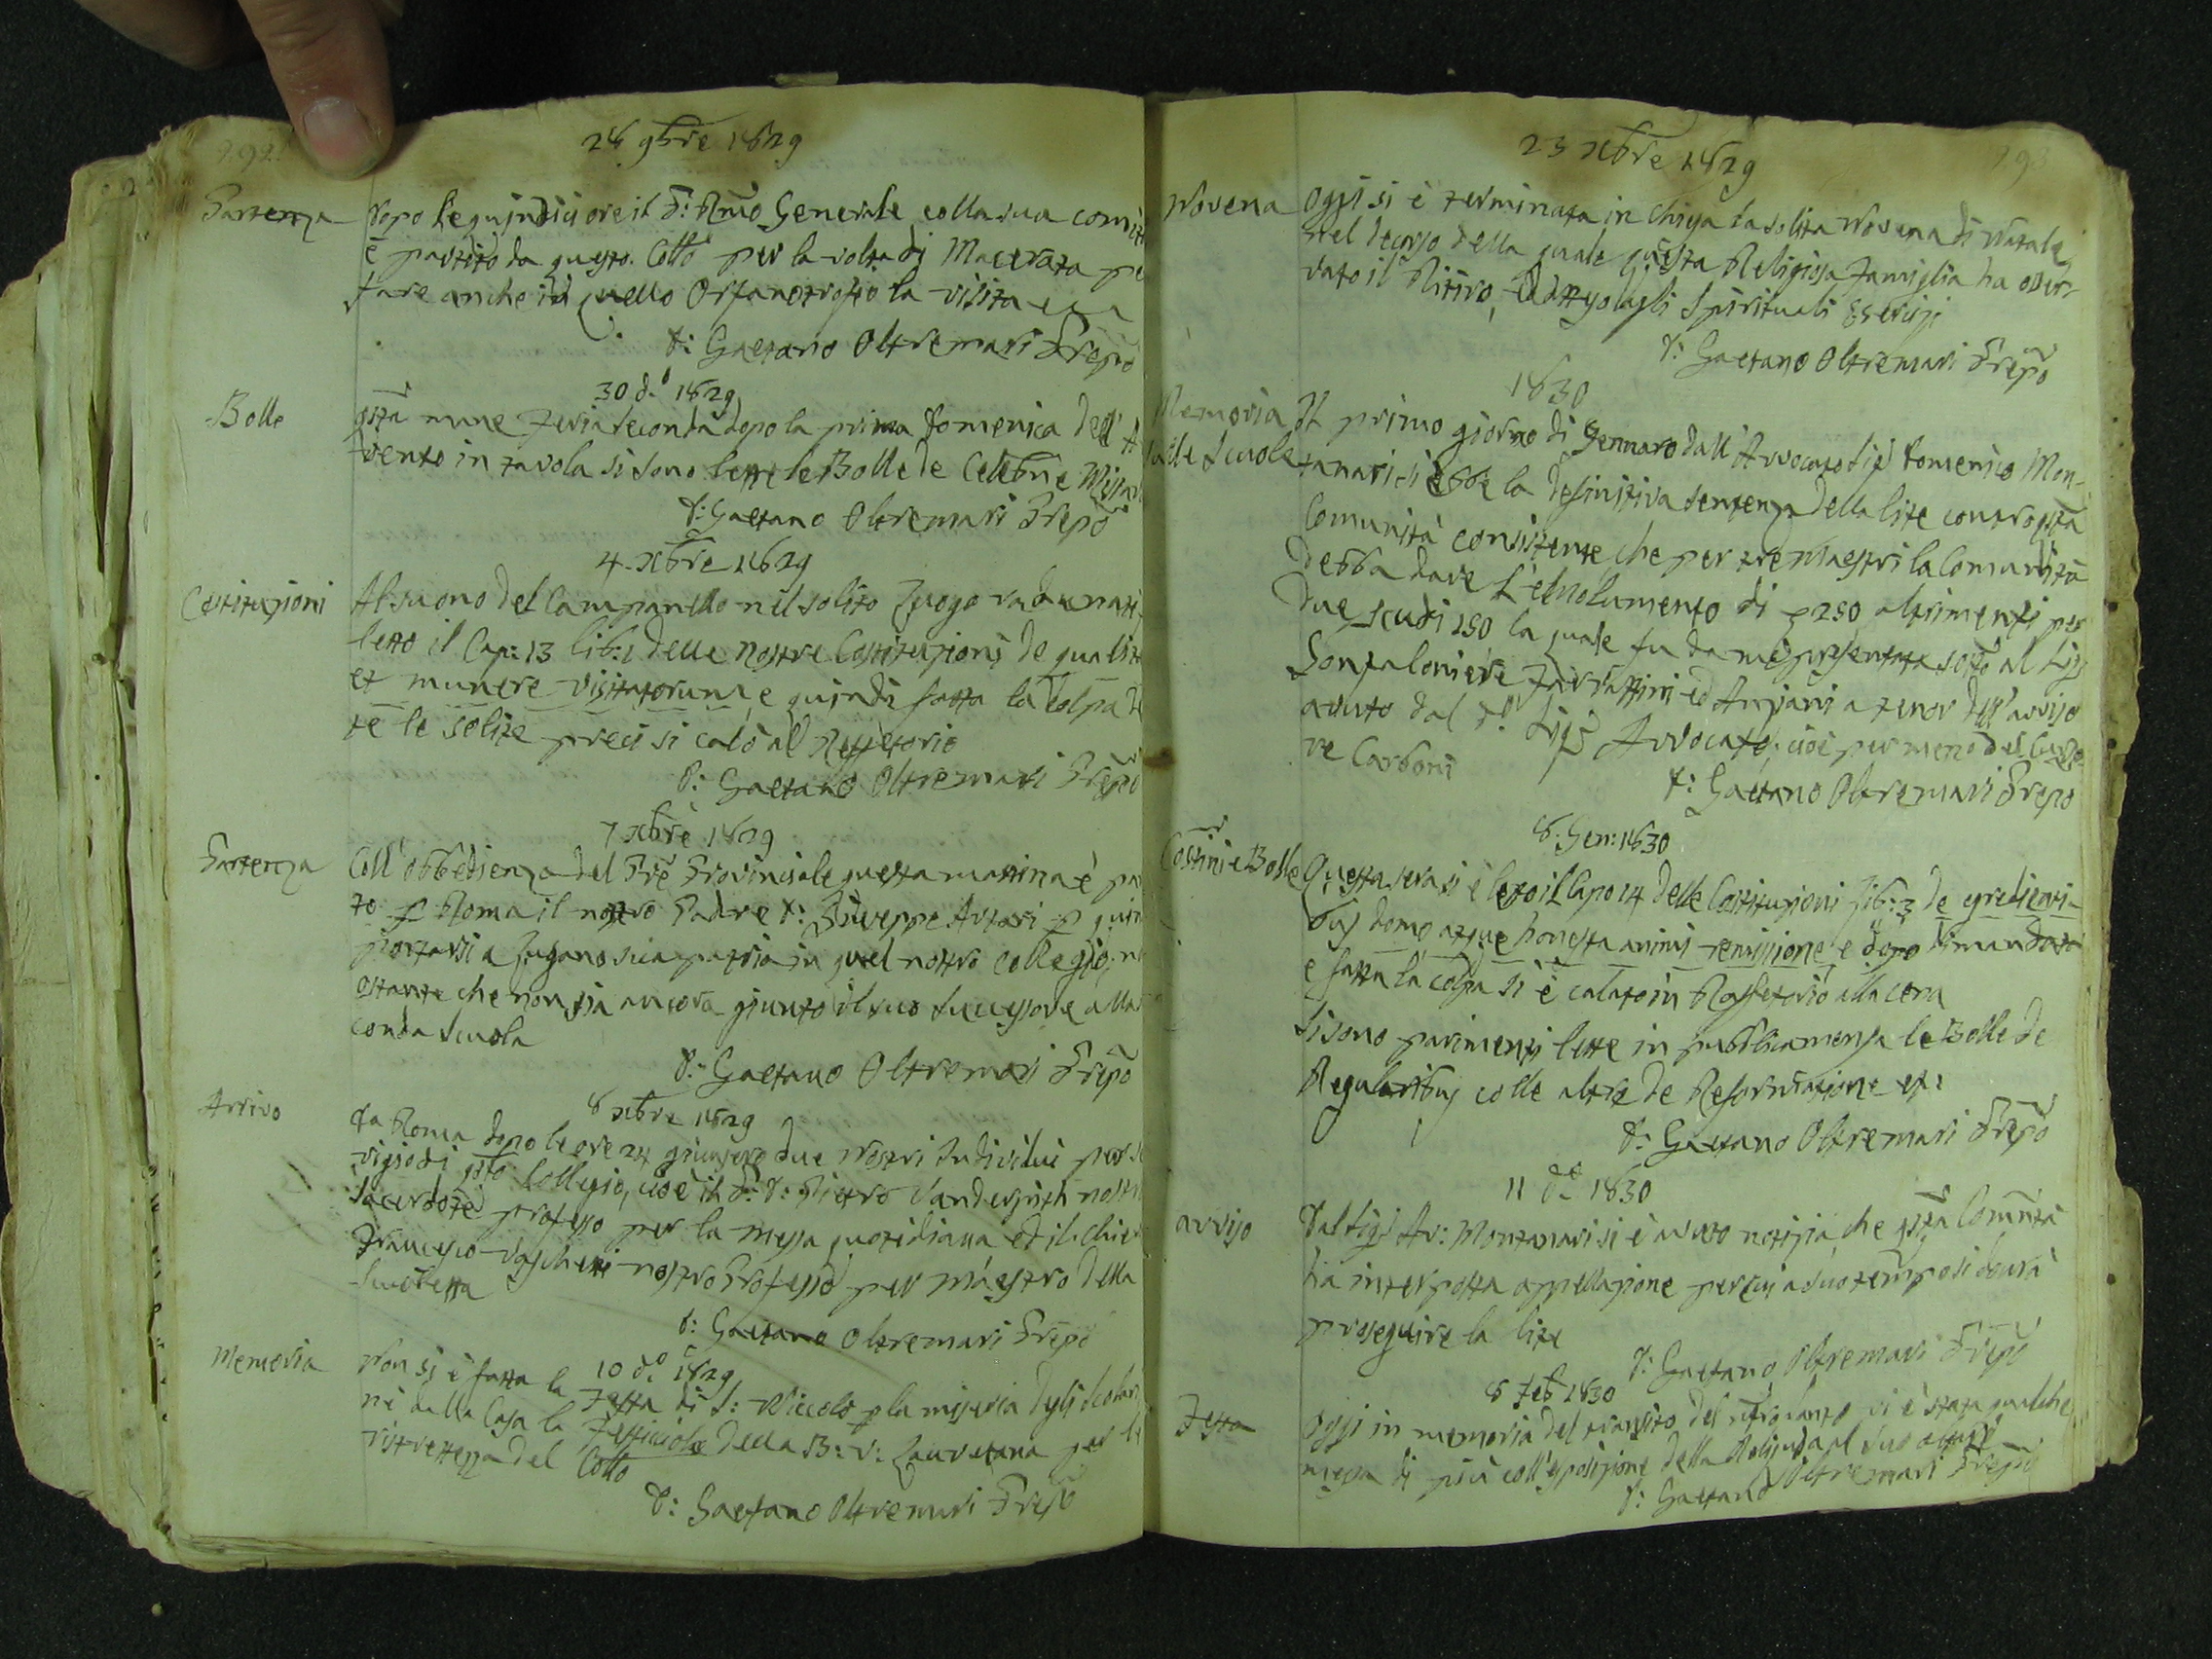 292
28 9bre 1829
Partenza Dopo le quindici ore il P: Rmo Generale colla sua comit
è partito da questo Collo per la volta di Macerata pe
fare anche in quello Orfanotrofio la visita
D: Gaetano Oltremari Prepo
30 do 1829
Bolle qsta mane Feria seconda dopo la prima Domenica dell' A
vento in tavola si sono lette le Bolle de Celebne Missar
D: Gaetano Oltremari Prepo
4 Xbre 1829
Costituzioni Al suono del Campanello nel solito luogo radunati
letto il Cap: 13 lib: 2 delle nostre Costituzioni de qualit
et munere visitatorum, e quindi fatta la Colpa d
te le solite preci si calò al Reffetorio
D: Gaetano Oltremari Prepo
7 Xbre 1829
Partenza Coll' obbedienza del Pre Provinciale questa mattina è par
to p Roma il nostro Padre D: Giuseppe Avtari p quin
portarsi a Lugano sua patria in quel nostro collegio, n
ostante che non sia ancora giunto il suo successore alla
conda scuola
D: Gaetano Oltremari Prepo
8 Xbre 1829
Arrivo Da Roma dopo le ore 24 giunsero due nostri Individui per s
vigio di qsto Collegio, cioè il P: D: Pietro Vandergrith nostr
Sacerdote professo per la messa quotidiana ed il Chier
Francesco Vaschetti nostro Professo per maestro della
Scuoletta
D: Gaetano Oltremari Prepo
10 do 1829
Memoria Non si è fatta la Festa di S: Niccolò p la miseria degli Scolari
nè dalla Casa la Festicciola della B: V: Lauretana per la
ristrettezza del Collo
D: Gaetano Oltremari Prepo
293
23 Xbre 1829
Novena Oggi si è terminata in Chiesa la solita Novena di Natale
nel decorso della quale questa Religiosa Famiglia ha osser-
vato il Ritiro, ed atteso agli Spirituali Esercizj
D: Gaetano Oltremari Prepo
1830
Memoria Il primo giorno di Gennaro dall' Avvocato Sig Domenico Mon-
sulle Scuole tanari si ebbe la definitiva sentenza della lite contro qsta
Comunità consistente che per tre Maestri la Comunità
debba dare L'emolumento di 250 altrimenti per
due scudi 150 la quale fu da me presentata sotto al Sig
Gonfaloniere ed Anziani a tenor dell' avviso
avuto dal do Sig Avvocato, cioè per mezzo del Curso-
re Carboni
D: Gaetano Oltremari Prepo
8. Gen: 1830
Costini e Bolle Questa sera si è letto il Capo 14 delle Costituzioni Lib: 3 de egredienti-
bus domo atque honesta animi remissione e dopo dimandata
e fatta la colpa si è calato in Reffetorio alla cena
Si sono parimenti lette in pubblica mensa le Bolle de
Regularibus colle altre de Reformatione et:
D: Gaetano Oltremari Prepo
11 do 1830
avviso Dal Sig Av: Montanari si è avuto notizia, che qsta Comunità
ha interposta appellazione per cui a suo tempo si dovrà
proseguire la lite
D: Gaetano Oltremari Prepo
8 Feb 1830
Festa Oggi in memoria del transito del nostro Santo vi è stata qualche
messa di più coll'esposizione della Reliquia al suo
D: Gaetano Oltremari Prepo